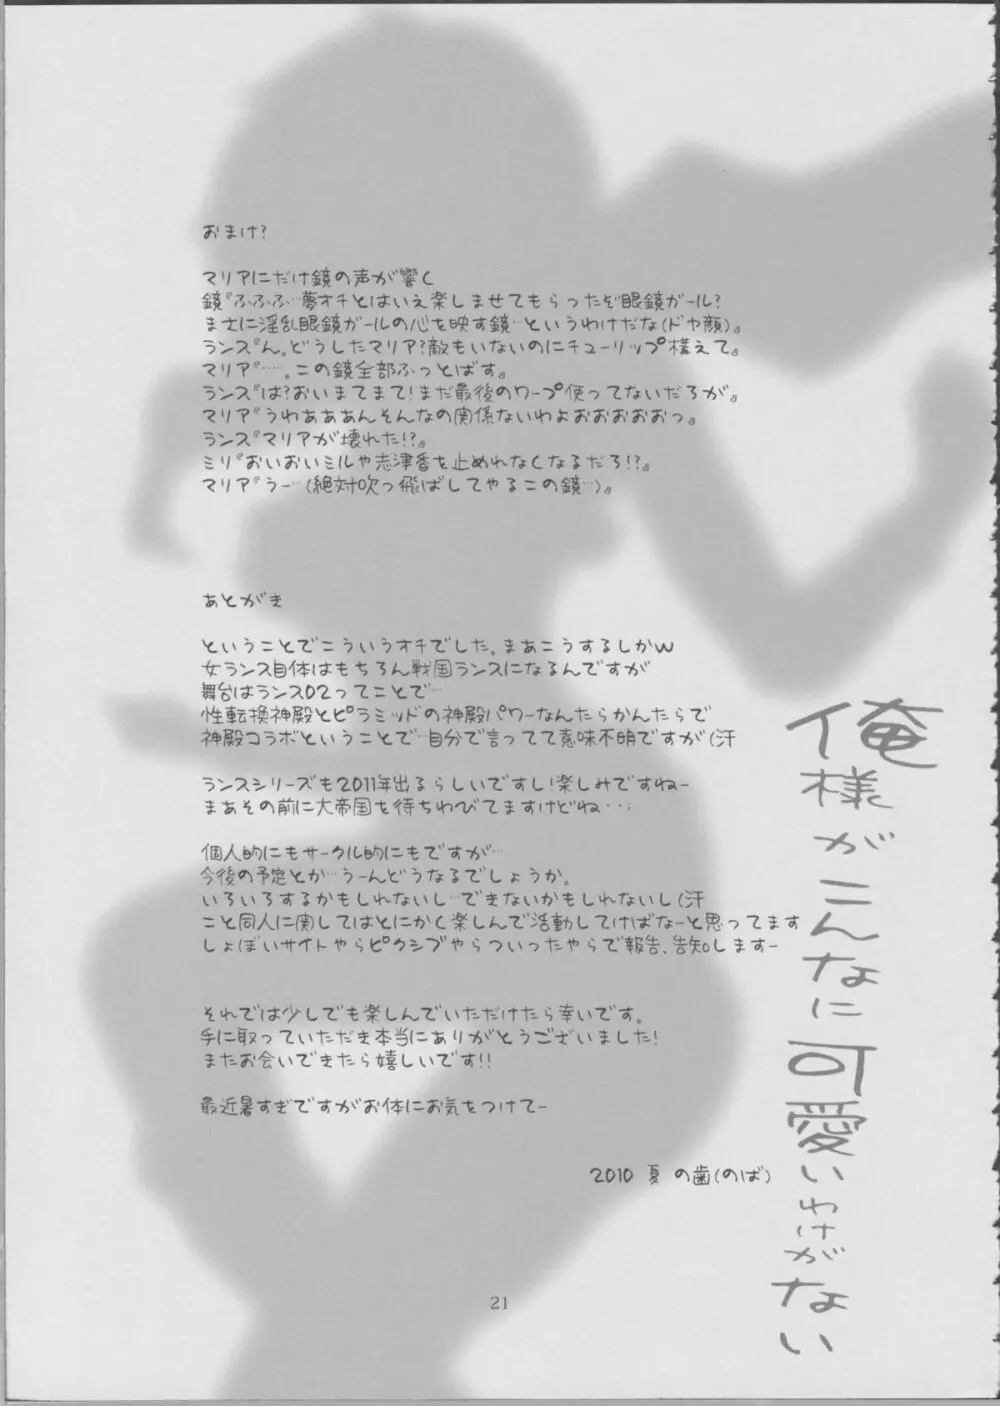 おまけ?
マリアにだけ鏡の声が響く
鏡『ふふふ…夢オチとはいえ楽しませてもらったぞ眼鏡ガール?
まさに淫乱眼鏡ガールの心を映す鏡…というわけだな(ドヤ顔)。』
ランス『ん。どうしたマリア?敵もいないのにチューリップ構えて。』
マリア『……。この鏡全部ふっとばす。』
ランス『は?おいまてまて!まだ最後のワープ使ってないだろが。』
マリア『うわぁああんそんなの関係ないわよおおおおおっ。』
ランス『マリアが壊れた!?』
ミリ『おいおいミルや志津香を止めれなくなるだろ!?』
マリア『うー…(絶対吹っ飛ばしてやるこの鏡…)。』
あとがき
ということでこういうオチでした。まあこうするしかw
女ランス自体はもちろん戦国ランスになるんですが
舞台はランス02ってことで…
性転換神殿とピラミッドの神殿パワーなんたらかんたらで
神殿コラボということで…自分で言ってて意味不明ですが(汗
ランスシリーズも2011年出るらしいですし!楽しみですねー
まあその前に大帝国を待ちわびてますけどね…;
個人的にもサークル的にもですが…
今後の予定とか…うーんどうなるでしょうか。
いろいろするかもしれないし…できないかもしれないし(汗
こと同人に関してはとにかく楽しんで活動してけばなーと思ってます
しょぼいサイトやらピクシブやらついったやらで報告、告知しますー
それでは少しでも楽しんでいただけたら幸いです。
手に取っていただき本当にありがとうございました!
またお会いできたら嬉しいです!!
最近暑すぎですがお体にお気をつけてー
2010 夏 の歯(のば)
俺様がこんなに可愛いわけがない
21